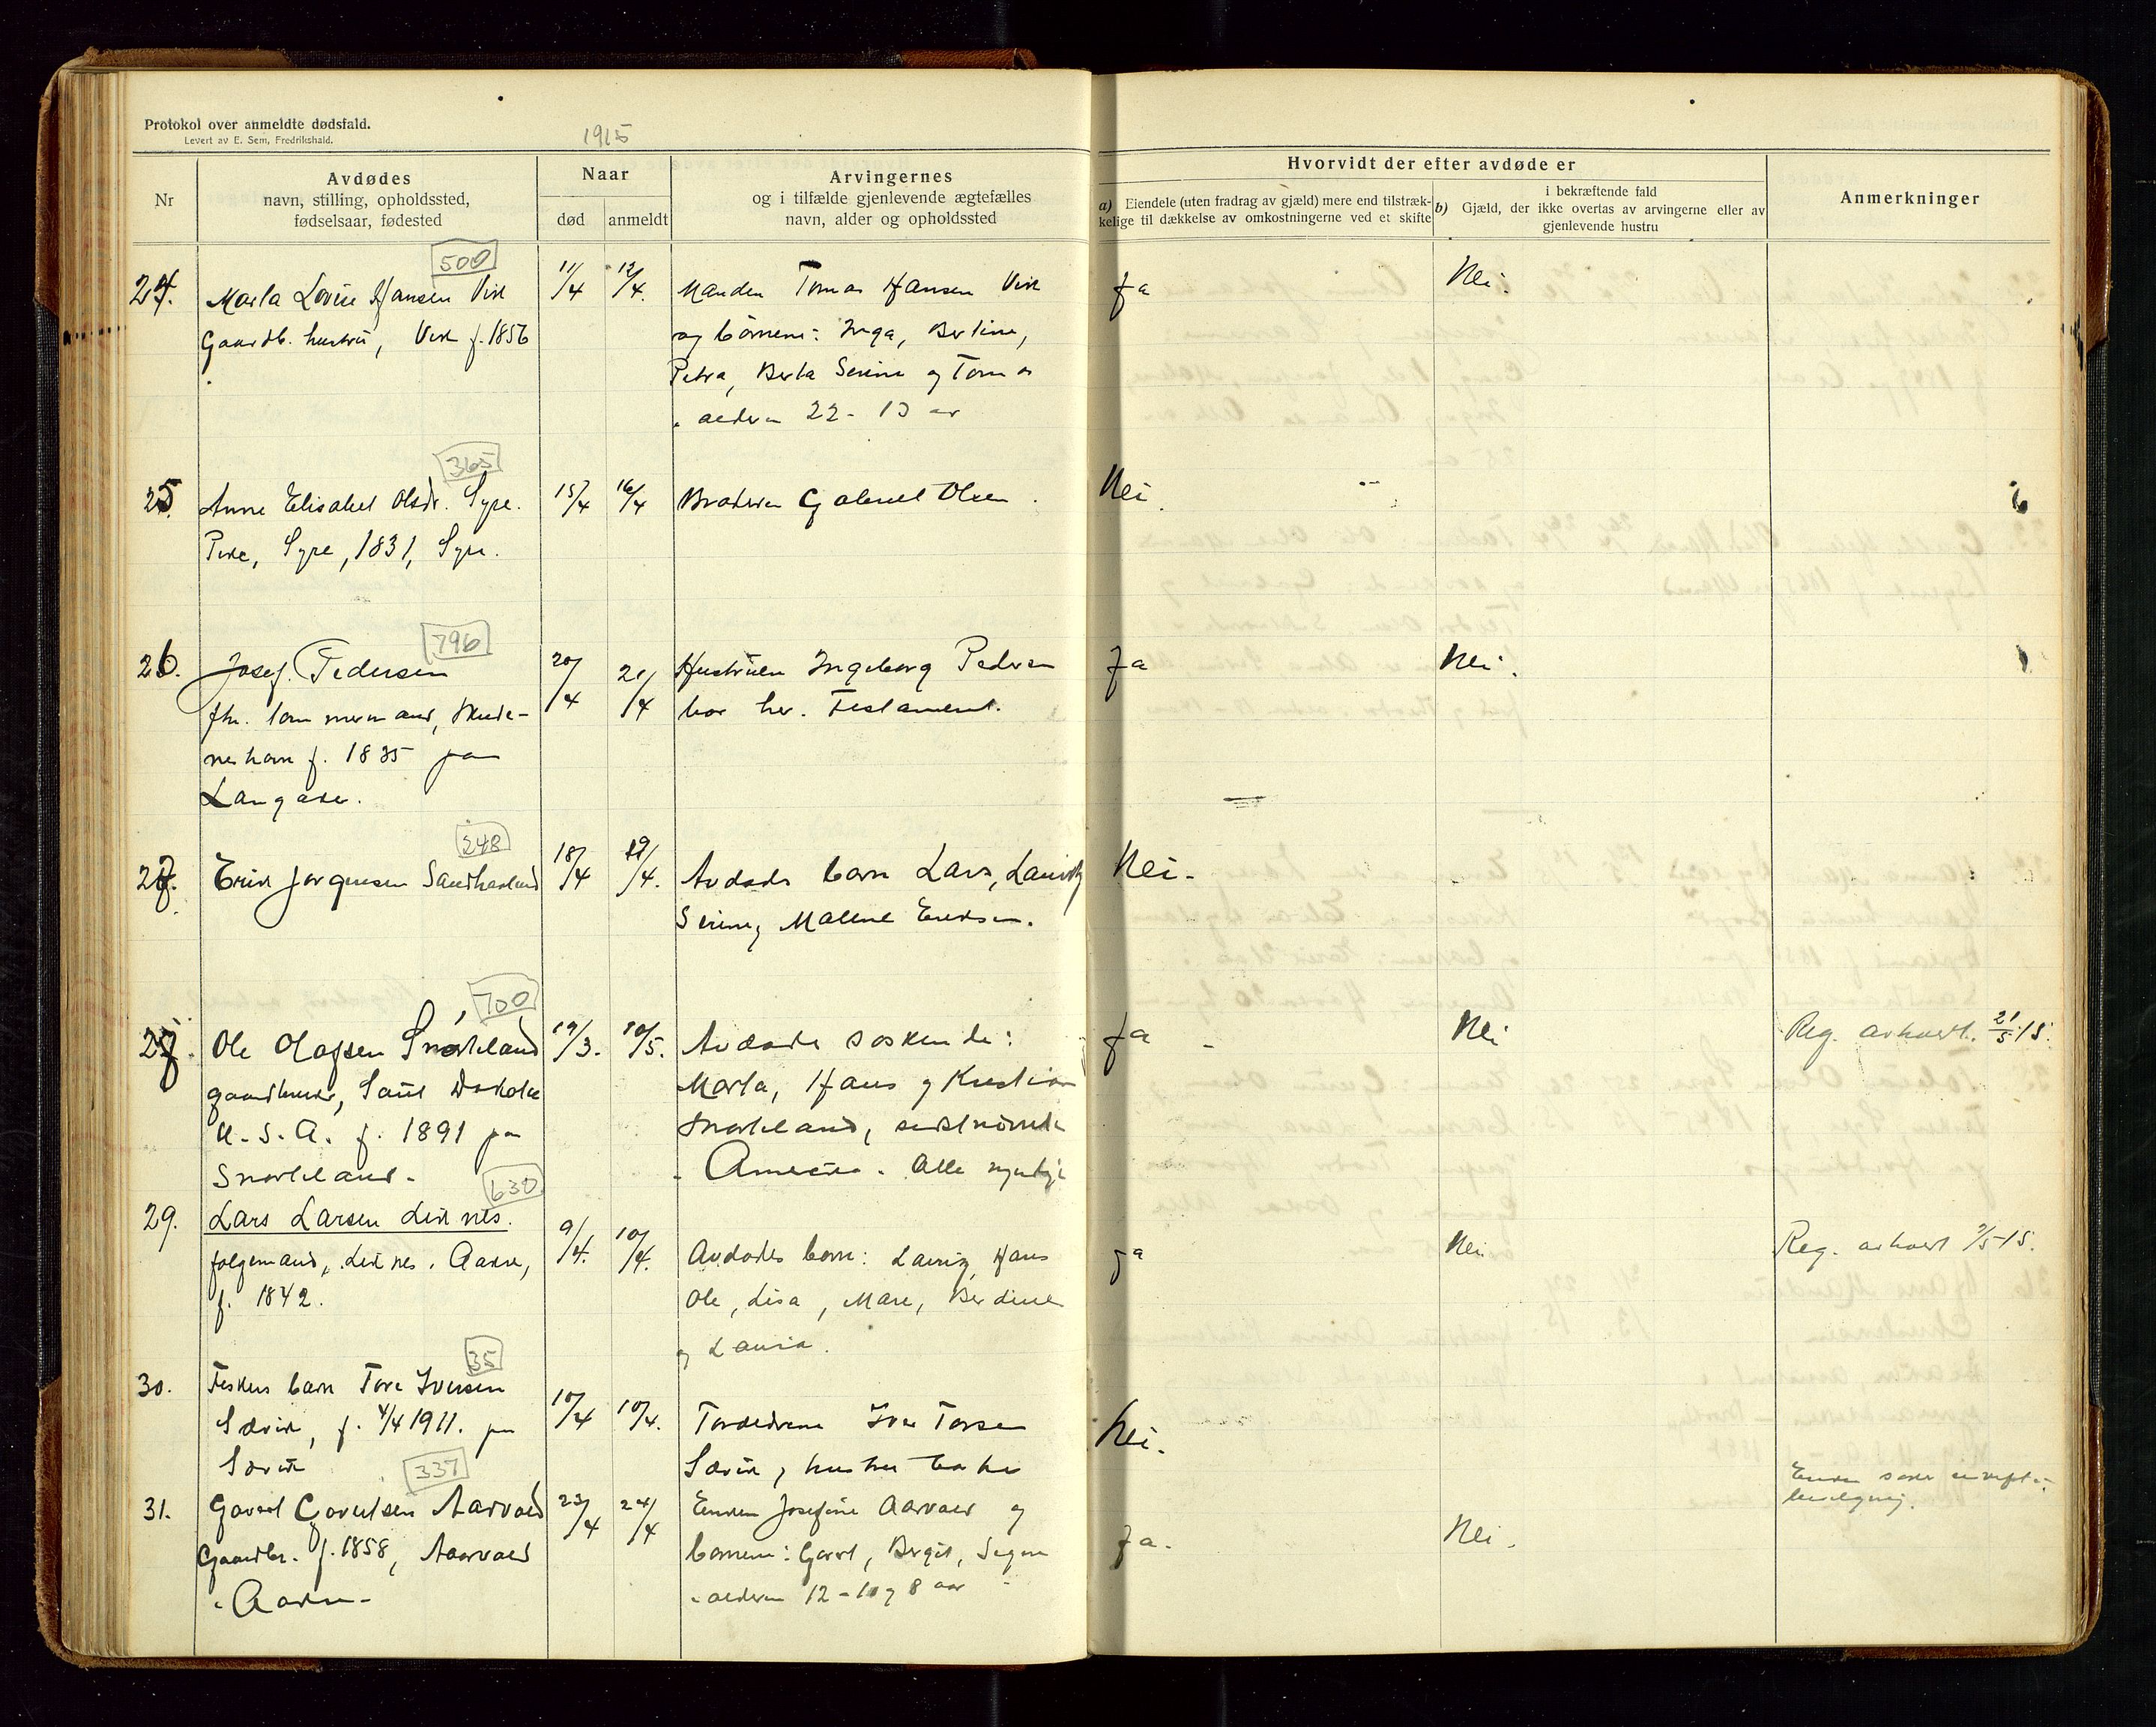 Protokol over anmeldte dødsfald.
Levert av E. Sem, Fredrikshald.
1915
Nr
Avdødes
navn, stilling, opholdssted,
fødselsaar, fødested
Naar
død
anmeldt
Arvingernes
og i tilfælde gjenlevende ægtefælles
navn, alder og opholdssted
Hvorvidt der efter avdøde er
a) Eiendele (uten fradrag av gjæld) mere end tilstræk-
kelige til dækkelse av omkostningerne ved et skifte
i bekræftende fald
b) Gjæld, der ikke overtas av arvingerne eller av
gjenlevende hustru
Anmerkninger
500
24. Marta Lovise Hansen Vik 11/4 12/4. Manden Tomas Hansen Vik Ja Nei.
Gaardb. hustru, Vik f. 1856 og børnene: Inga, Bertine,
Petra, Berta Serine og Tomas
i alderen 22 - 13 aar
365
25. Anne Elisabet Olsdr. Syre. 15/4 16/4 Broderen Gabriel Olsen. Nei.
Pike, Syre, 1831, Syre.
796
26. Josef Pedersen 20/4 21/4 Hustruen Ingeborg Pedersen Ja Nei.
fhv. tømmermand, Skude-
bor her. Testament.
neshavn f. 1835 paa
Langaker.
248
27. Erik Jørgensen Sandhaaland 18/4 19/4. Avdødes børn Lars, Lauritz Nei.
Serine, Malene Eriksen.
700
27. Ole Olafsen Snørteland 19/3. 10/5. Avdødes søskende: Ja - Nei Reg. avholdt. 21/5 15.
gaardbruker, Saut Dakota Marta, Hans og Kristian
U.S.A. f. 1891 paa Snørteland, sidstnævnte
Snørteland. i Amerika. Alle myndige
630
29. Lars Larsen Liknes. 9/4. 10/4. Avdødes børn: Lauritz, Hans ja Nei Reg. avholdt 7/5 15.
følgemand, Liknes. Aakre,
f. 1842. Ole, Lisa, Mare, Berdine
og Laura.
35
30. Fiskers barn Tore Iversen 10/4 10/4. Forældrene Iver Torsen Nei.
Sævik, f. 4/4 1911. paa
Sævik Sævik, hustru
337
31. Gavert Gavertsen Aarvold 23/4 24/4 Enken Josefine Aarvold og Ja. Nei. Enken søker uskifte-
bevilgning.
Gaardbr. f. 1858, Aarvold børnene: Gavert, Bergit, Signe
i Aakre. i alderen 12 - 10 og 8 aar